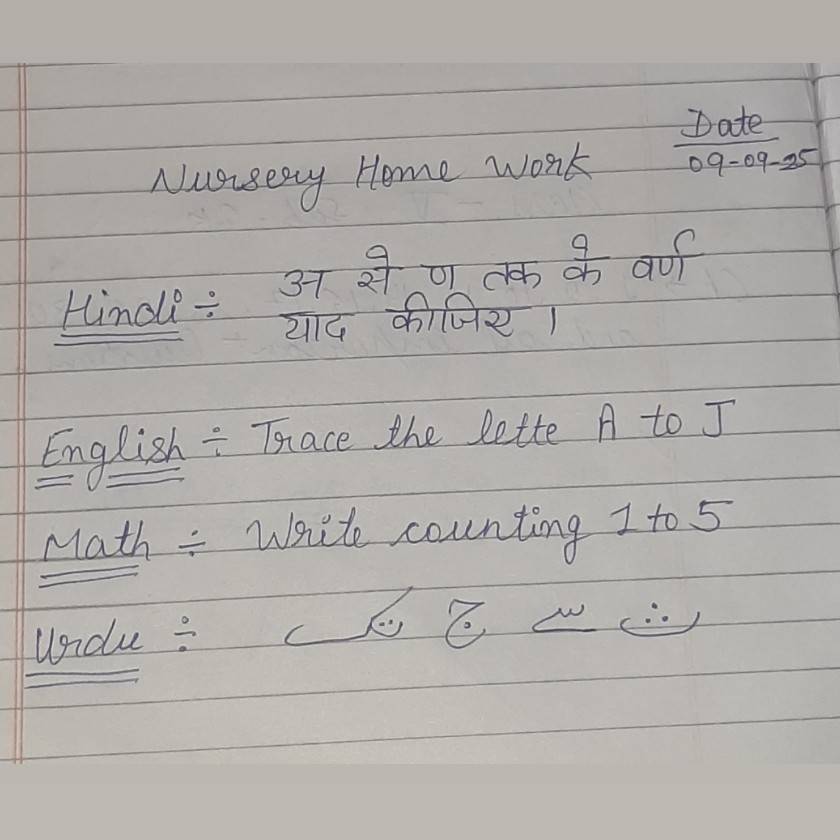 Date
09-09-25
Nursery Home Work
Hindi ÷ अ से ण तक के वर्ण
याद कीजिए ।
English ÷ Trace the lette A to J
Math ÷ Write counting 1 to 5
Urdu ÷ ث سے ج تک